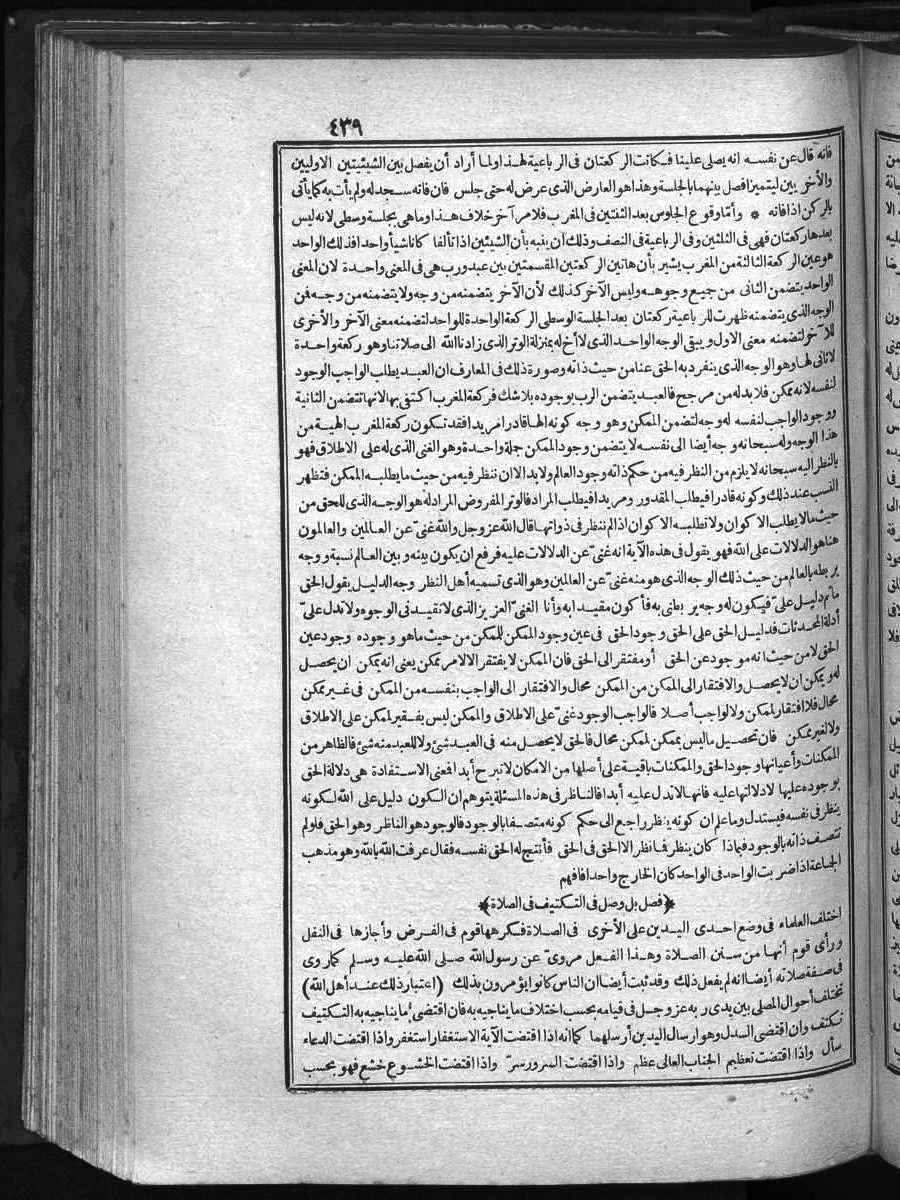 ٤٣٩
فانه قال عن نفسه انه يصلى علينا فكانت الركعتان فى الرباعية لهذا ولما أراد أن يفصل بين الشيئين الاوليين
والأخريين ليتميزا فصل بينهما بالجلسة وهذا هو العارض الذى عرض له حتى جلس فان فانه سجد له ولم يأت به كما يأتى
بالركن اذا فاته * وأما وقوع الجلوس بعد الثنتين فى المغرب فلامر آخر خلاف هذا وما هى بجلسة وسطى لانه ليس
بعدها ركعتان فهى فى الثلثين وفى الرباعية فى النصف وذلك أن ينبه بأن الشيئين اذا تألفا كانا شيأ واحدا فذلك الواحد
هو عين الركعة الثالثة من المغرب يشير بأن هاتين الركعتين المقسمتين بين عبد ورب هى فى المعنى واحدة لان المعنى
الواحد يتضمن الثانى من جميع وجوهه وليس الآخر كذلك لأن الآخر يتضمنه من وجه ولا يتضمنه من وجه فمن
الوجه الذى يتضمنه ظهرت للرباعية ركعتان بعد الجلسة الوسطى الركعة الواحدة للواحد لتضمنه معنى الآخر والأخرى
للآخر لتضمنه معنى الاول ويبقى الوجه الواحد الذى لا أخ له بمنزلة الوتر الذى زادنا الله الى صلاتنا وهو ركعة واحدة
لا ثانى لها وهو الوجه الذى ينفرد به الحق عنا من حيث ذاته وصورة ذلك فى المعارف ان العبد يطلب الواجب الوجود
لنفسه لانه ممكن فلا بد له من مرجح فالعبد يتضمن الرب بوجوده بلا شك فركعة المغرب اكتفى بها لانها تتضمن الثانية
ووجود الواجب لنفسه له وجه لتضمن الممكن وهو وجه كونه الها قادرا مريدا فقد تكون ركعة المغرب الهية من
هذا الوجه وله سبحانه وجه أيضا الى نفسه لا يتضمن وجود الممكن جملة واحدة وهو الغنى الذى له على الاطلاق فهو
بالنظر اليه سبحانه لا يلزم من النظر فيه من حكم ذاته وجود العالم ولا بد الا ان ننظر فيه من حيث ما يطلبه الممكن فتظهر
النسب عند ذلك وكونه قادرا فيطلب المقدور ومريدا فيطلب المراد فالوتر المفروض المراد له هو الوجه الذى للحق من
حيث ما لا يطلب الاكوان ولا تطلبه الاكوان اذا لم ننظر فى ذواتها قال الله عز وجل والله غنىّ عن العالمين والعالمون
هنا هو الدلالات على الله فهو يقول فى هذه الآية انه غنىّ عن الدلالات عليه فرفع ان يكون بينه وبين العالم نسبة ووجه
يربطه بالعالم من حيث ذلك الوجه الذى هو منه غنىّ عن العالمين وهو الذى تسميه أهل النظر وجه الدليل يقول الحق
ماثم دليل علىّ فيكون له وجه يربطنى به فأكون مقيدا به وأنا الغنىّ العزيز الذى لا تقيده فى الوجوه ولا تدل علىّ
أدلة المحدثات فدليل الحق على الحق وجود الحق فى عين وجود الممكن للممكن من حيث ما هو وجوده وجود عين
الحق لا من حيث انه موجود عن الحق أو مفتقر الى الحق فان الممكن لا يفتقر الا لامر ممكن يعنى انه يمكن ان يحصل
له ويمكن ان لا يحصل والافتقار الى الممكن من الممكن محال والافتقار الى الواجب بنفسه من الممكن فى غير ممكن
محال فلا افتقار لممكن ولا لواجب أصلا فالواجب الوجود غنىّ على الاطلاق والممكن ليس بفقير لممكن على الاطلاق
ولا لغير ممكن فان تحصيل ماليس بممكن لممكن محال فالحق لا يحصل منه فى العبد شئ ولا للعبد منه شئ فالظاهر من
الممكنات وأعيانها وجود الحق والممكنات باقية على أصلها من الامكان لا تبرح أبدا فمعنى الاستفادة هى دلالة الحق
بوجوده عليها لا دلالتها عليه فانها لا تدل عليه أبدا فالناظر فى هذه المسئلة يتوهم ان الكون دليل على الله لكونه
ينظر فى نفسه فيستدل وما علم ان كونه ينظر راجع الى حكم كونه متصفا بالوجود فالوجود هو الناظر وهو الحق فلو لم
تتصف ذاته بالوجود فبماذا كان ينظر فما نظر الا الحق فى الحق فأنتج له الحق نفسه فقال عرفت الله بالله وهو مذهب
الجماعة اذا ضربت الواحد فى الواحد كان الخارج واحدا فافهم
﴿فصل بل وصل فى التكتيف فى الصلاة﴾
اختلف العلماء فى وضع احدى اليدين على الأخرى فى الصلاة فكرهها قوم فى الفرض وأجازها فى النفل
ورأى قوم أنها من سنن الصلاة وهذا الفعل مروىّ عن رسول الله صلى الله عليه وسلم كما روى
فى صفة صلاته أيضا انه لم يفعل ذلك وقد ثبت أيضا ان الناس كانوا يؤمرون بذلك (اعتبار ذلك عند أهل الله)
تختلف أحوال المصلى بين يدى ربه عز وجل فى قيامه بحسب اختلاف ما يناجيه به فان اقتضى ما يناجيه به التكتيف
تكتف وان اقتضى السدل وهو ارسال اليدين أرسلهما كما انه اذا اقتضت الآية الاستغفار استغفر واذا اقتضت الدعاء
سأل واذا اقتضت تعظيم الجناب العالى عظم واذا اقتضت السرور سرّ واذا اقتضت الخشوع خشع فهو بحسب